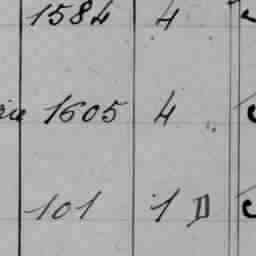 1584 4
1605 4
101 1 D